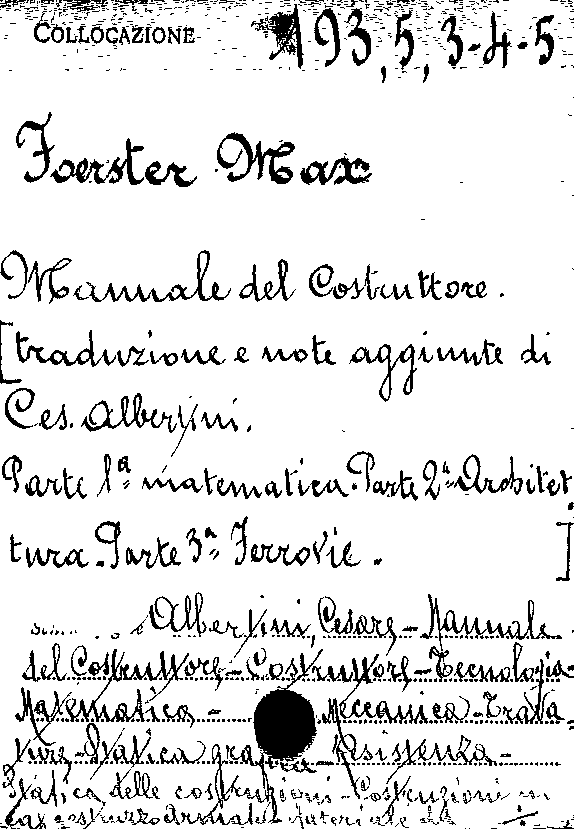 COLLOCAZIONE 193,5,3-4-5
Foerster Max
Manuale del Costruttore.
[traduzione e note aggiunte di
Ces. Albertini.
Parte 1ª matematica. Parte 2ª Architet
tura. Parte 3ª Ferrovie. ]
Albertini, Cesare - Manuale
del Costruttore - Costruttore - Tecnologia -
Matematica - Meccanica - Trava
ture - Statica grafica - Resistenza -
Statica delle costruzioni - Costruzioni in
armato - Materiale da